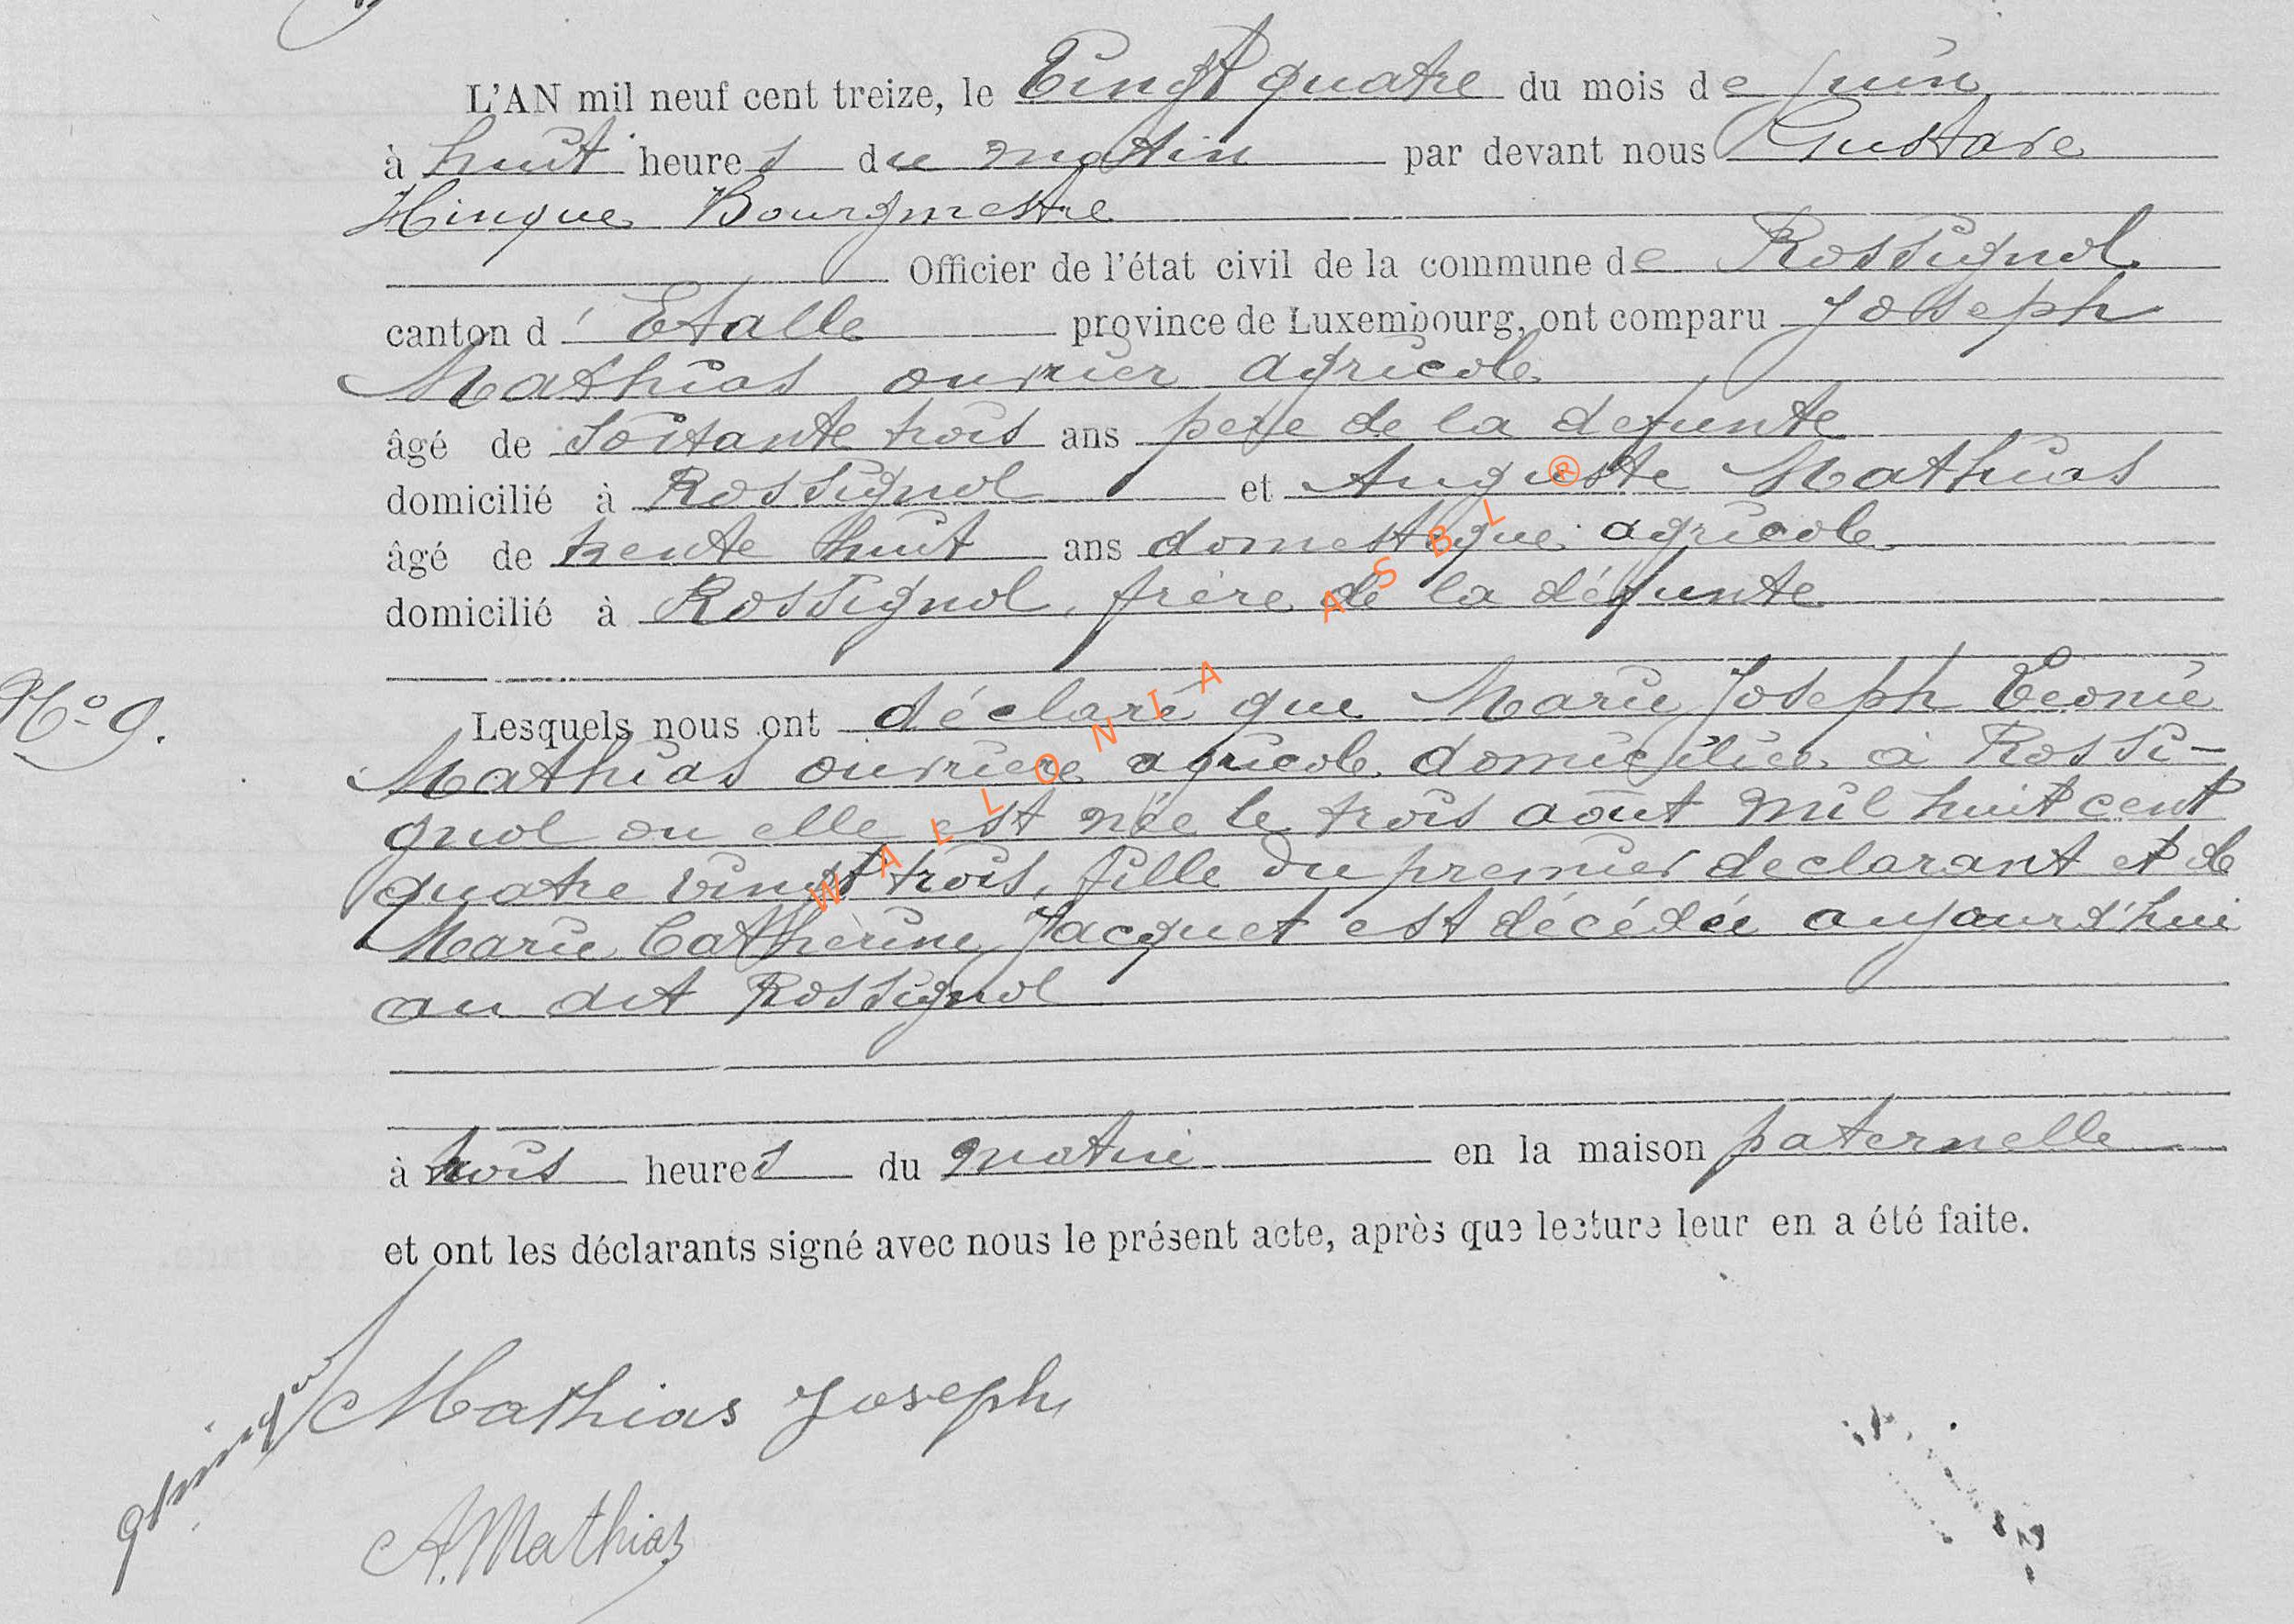 L'AN mil neuf cent treize, le Vingt quatre du mois de juin
à huit heures du matin par devant nous Gustave
Hinque Bourgmestre
Officier de l'état civil de la commune de Rossignol
canton d'Etalle province de Luxembourg, ont comparu Joseph
Mathias ouvrier agricole
âgé de soixante trois ans père de la defunte
domicilié à Rossignol et Auguste Mathias
âgé de trente huit ans domestique agricole
domicilié à Rossignol, frère de la défunte
No 9.
Lesquels nous ont déclaré que Marie Joseph Leonie
Mathias ouvrière agricole domiciliée à Rossi-
gnol ou elle est née le trois août mil huit cent
quatre vingt trois, fille du premier declarant et de
Marie Catherine Jacquet est décédée aujourd'hui
au dit Rossignol
à trois heures du matin en la maison paternelle
et ont les déclarants signé avec nous le présent acte, après que lecture leur en a été faite.
Mathias Joseph
A. Mathias
WALLONIA ASBL ®